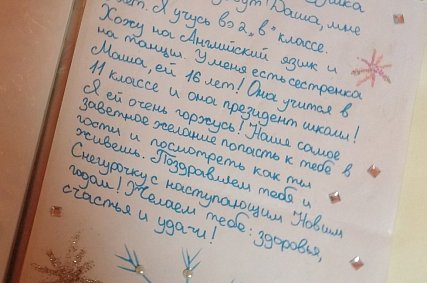 Даша, мне
лет. Я учусь во 2 „в" классе.
Хожу на Английский язик и
на танци. У меня есть сестренка
Маша, ей 16 лет! Она учится в
11 классе и она президент школи!
Я ей очень горжусь! Наше самое
заветное желание попасть к тебе в
гости и посмотреть как ти
живешь. Поздравляем тебя и
Снегурочку с наступающим Новим
годом! Желаем тебе: здоровья,
счастья и удачи!